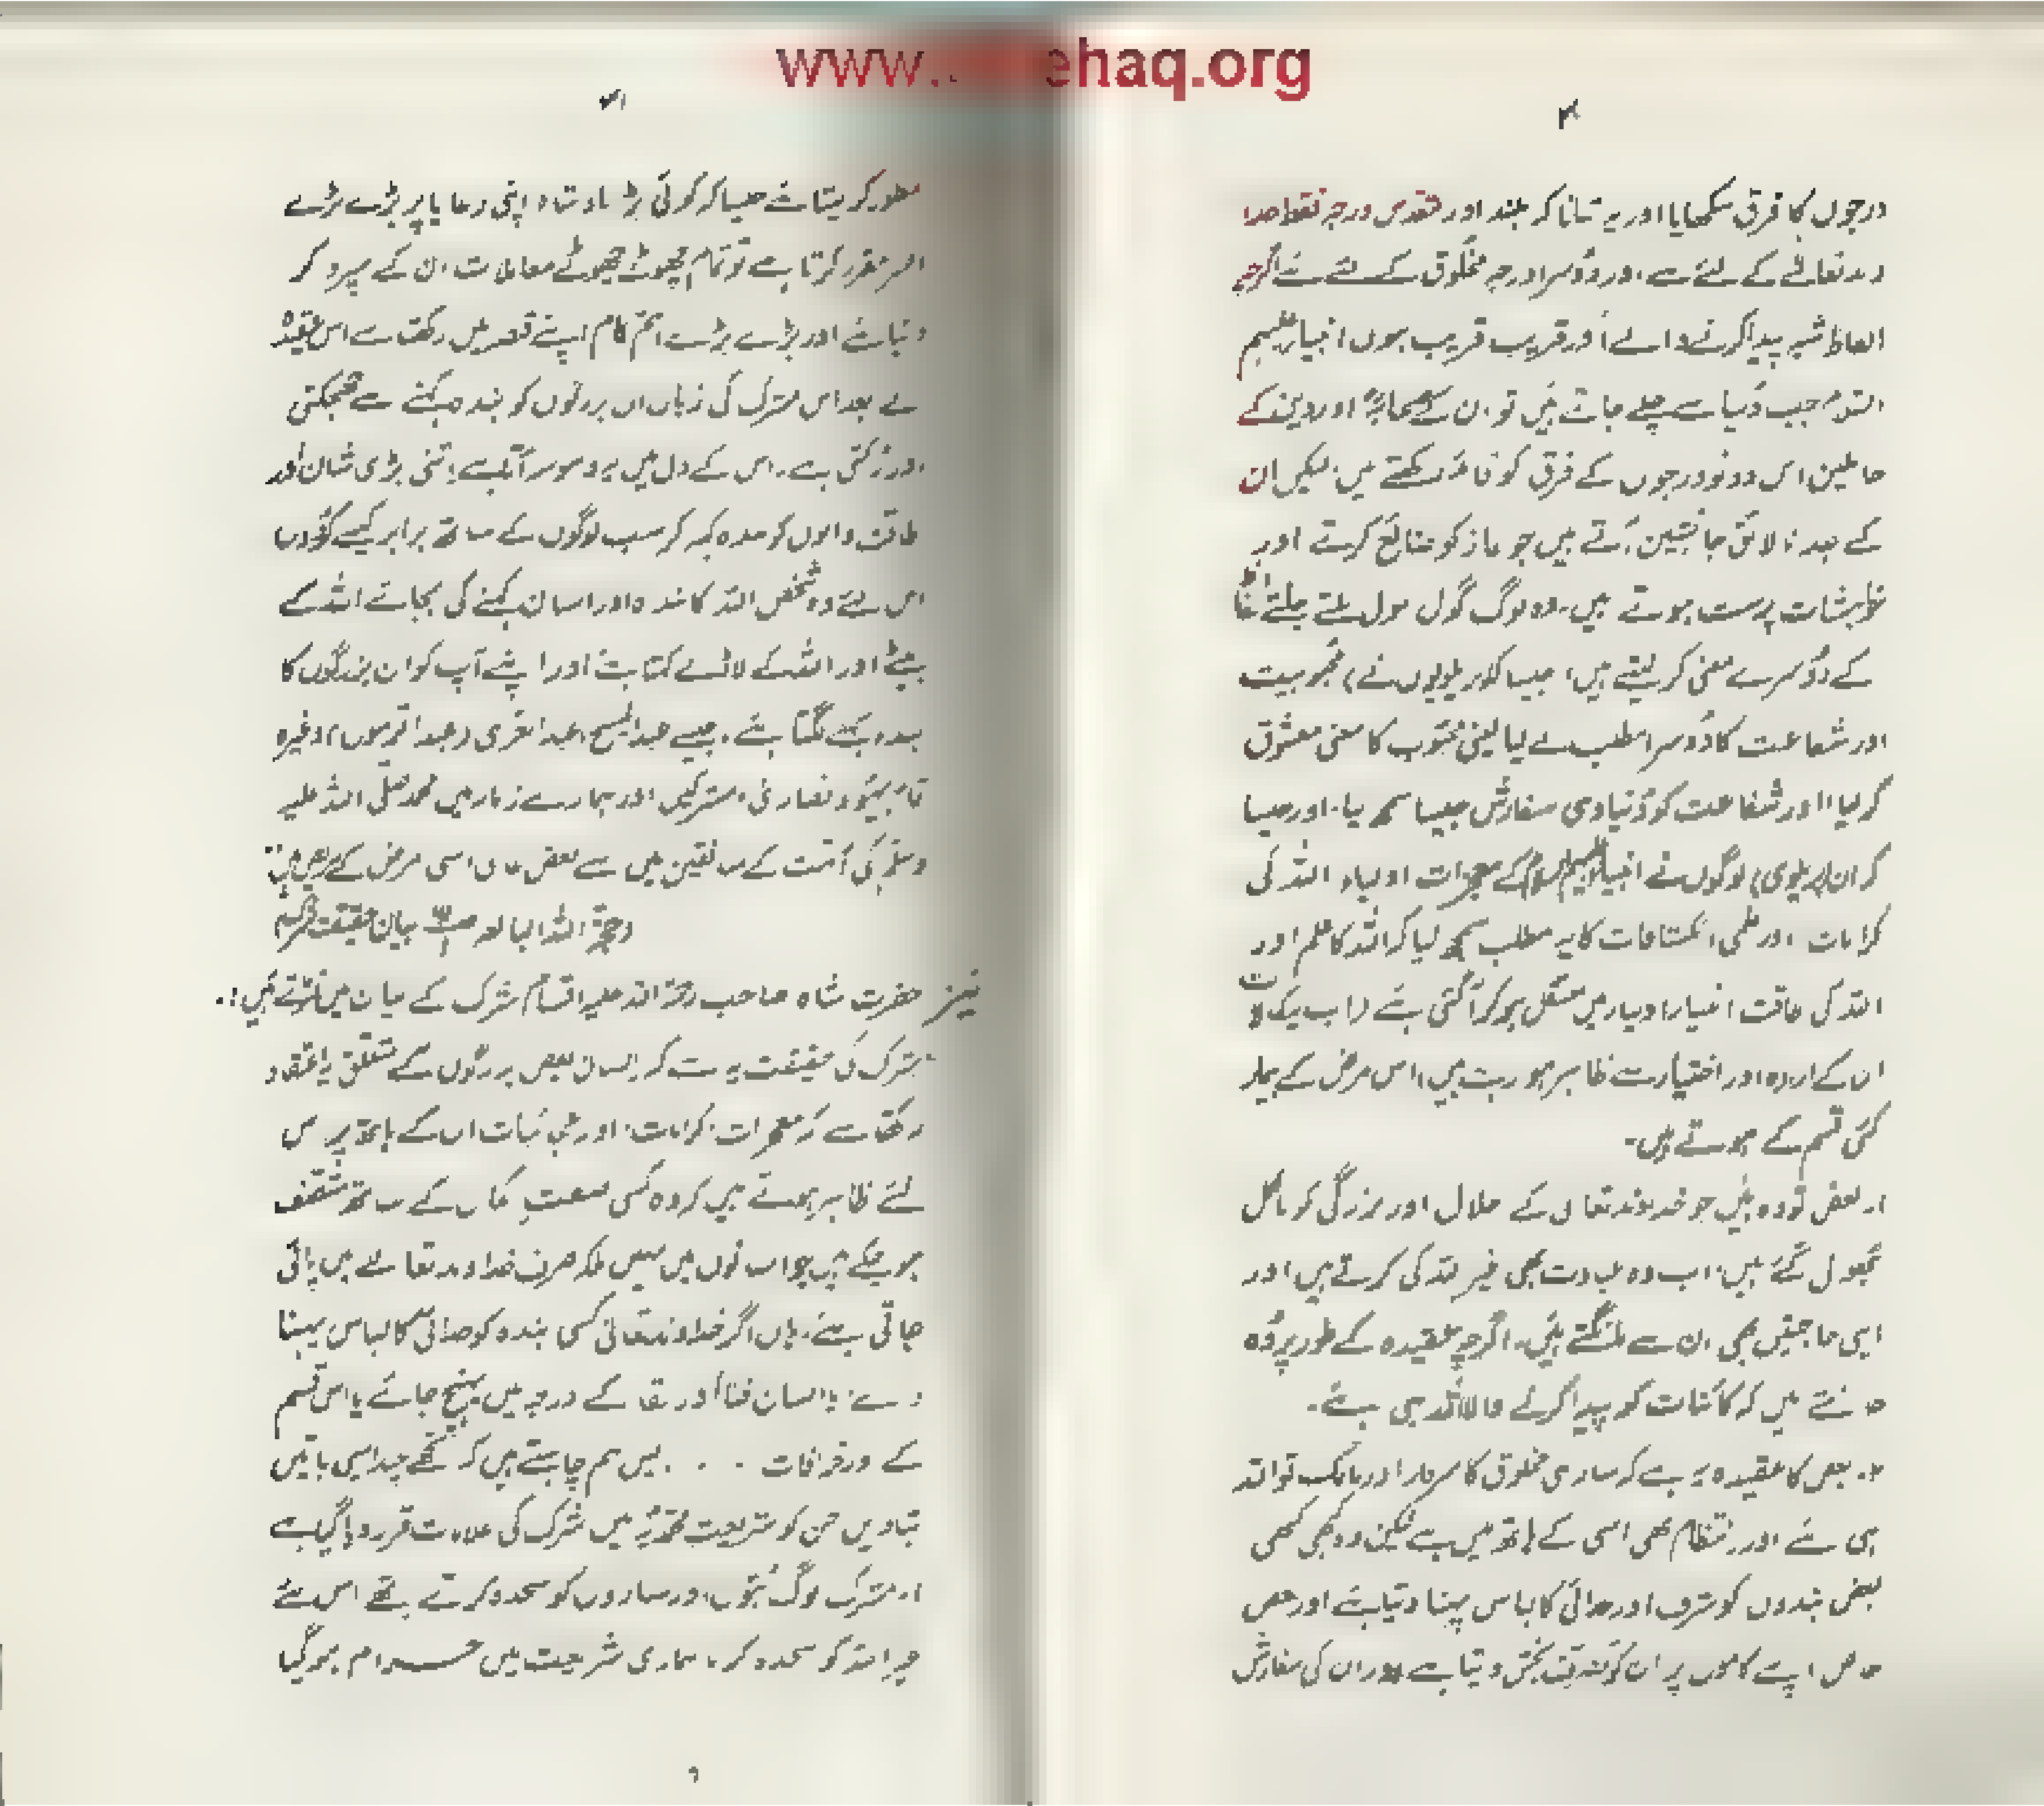 www. ehaq.org
درجوں کا فرق سکھایا اور یہ بتانا کہ بلند اور مقدس درجہ فقط خدا
وند تعالٰے کے لئے ہے اور دُوسرا درجہ مخلوق کے لئے ہے اگرچہ
الفاظ شبہ پیدا کرنے والے اور قریب قریب ہوں انبیاء علیہم
السلام جب دُنیا سے چلے جاتے ہیں تو ان کے صحابہؓ اور دین کے
حاملین اس دونو درجوں کے فرق کو قائم رکھتے ہیں لیکن ان
کے بعد نالائق جانشین آتے ہیں جو نماز کو ضائع کرتے اور
خواہشات پرست ہوتے ہیں، وہ لوگ گول مول ملتے جلتے
کے دُوسرے معنی کر لیتے ہیں، جیسا کہ بریلویوں نے) محبوبیت
اور شفاعت کا دُوسرا مطلب لے لیا یعنی محبُوب کا معنی معشوق
کر لیا اور شفاعت کو دُنیاوی سفارش جیسا سمجھ لیا۔ اور جیسا
کہ ان (بریلوی) لوگوں نے انبیاء علیہم السلام کے معجزات اولیاء اللہ کی
کرامات اور علمی انکشافات کا یہ مطلب سمجھ لیا کہ اللہ کا علم اور
اللہ کی طاقت انبیاء اولیاء میں منتقل ہو کر آ گئی ہے (اب یہ
ان کے ارادہ اور اختیار سے ظاہر ہو رہے ہیں، اس مرض کے بیمار
کئی قسم کے ہوتے ہیں۔
۱۔ بعض تو وہ ہیں جو خداوند تعالٰی کے جلال اور بزرگی کو بالکل
بھول گئے ہیں، اب وہ عبادت بھی غیر اللہ کی کرتے ہیں اور
اپنی حاجتیں بھی ان سے مانگتے ہیں، اگرچہ عقیدہ کے طور پر وُہ
جانتے ہیں کہ کائنات کو پیدا کرنے والا اللہ ہی ہے۔
۲۔ بعض کا عقیدہ یہ ہے کہ ساری مخلوق کا سردار اور مالک تو اللہ
ہی ہے اور انتظام بھی اسی کے ہاتھ میں ہے لیکن وہ کبھی کبھی
بعض بندوں کو شرف اور خدائی کا لباس پہنا دیتا ہے اور بعض
خاص اپنے کاموں پر ان کو قدرت بخش دیتا ہے اور ان کی سفارش
۳۱
منظور کر لیتا ہے جیسا کہ کوئی بڑا بادشاہ اپنی رعایا پر بڑے بڑے
افسر مقرر کرتا ہے تو تمام چھوٹے چھوٹے معاملات ان کے سپرد کر
دیتا ہے اور بڑے بڑے اہم کام اپنے قصر میں رکھتا ہے اس عقیدہ
کے بعد اس مشرک کی زبان ان بزرگوں کو بندہ کہنے سے جھجکتی
اور رُکتی ہے۔ اس کے دل میں یہ وسوسہ آتا ہے اتنی بڑی شان اور
طاقت والوں کو بندہ کہہ کر سب لوگوں کے ساتھ برابر کیسے کر دُوں
اس لئے وہ شخص اللہ کا بندہ اور انسان کہنے کی بجائے اللہ کے
بیٹے اور اللہ کے لاڈلے کہتا ہے اور اپنے آپ کو ان بزرگوں کا
بندہ کہنے لگتا ہے۔ جیسے عبدالمسیح، عبدالعزٰی وغیرہ
یہود و نصارٰی، مشرکین اور ہمارے زمانہ میں محمد صلی اللہ علیہ
وسلم کی اُمت کے منافقین میں سے بعض غالی اسی مرض کے مریض ہیں
(حجۃ اللہ البالغہ بیان حقیقت شرک)
نیز حضرت شاہ صاحب رحمۃ اللہ علیہ اقسام شرک کے بیان میں فرماتے ہیں:۔
شرک کی حقیقت یہ ہے کہ انسان بعض بزرگوں کے متعلق یہ اعتقاد
رکھتا ہے کہ معجزات، کرامات، اور عجائبات ان کے ہاتھ پر اس
لئے ظاہر ہوتے ہیں کہ وہ کسی صفتِ کمال کے ساتھ متصف
ہو چکے ہیں جو انسانوں میں نہیں بلکہ صرف خداوند تعالٰے میں پائی
جاتی ہے۔ ہاں اگر خداوند تعالٰی کسی بندہ کو خدائی کا لباس پہنا
دے یا انسان فنا اور بقا کے درجہ میں پہنچ جائے یا اس قسم
کے اور خرافات . . . پس ہم چاہتے ہیں کہ تجھے چند ایسی باتیں
بتا دیں جن کو شریعت محمدیہ میں شرک کی علامت قرار دیا گیا ہے
۱۔ مشرک لوگ بُتوں اور ستاروں کو سجدہ کرتے تھے اس لئے
غیر اللہ کو سجدہ کرنا ہماری شریعت میں حرام ہو گیا